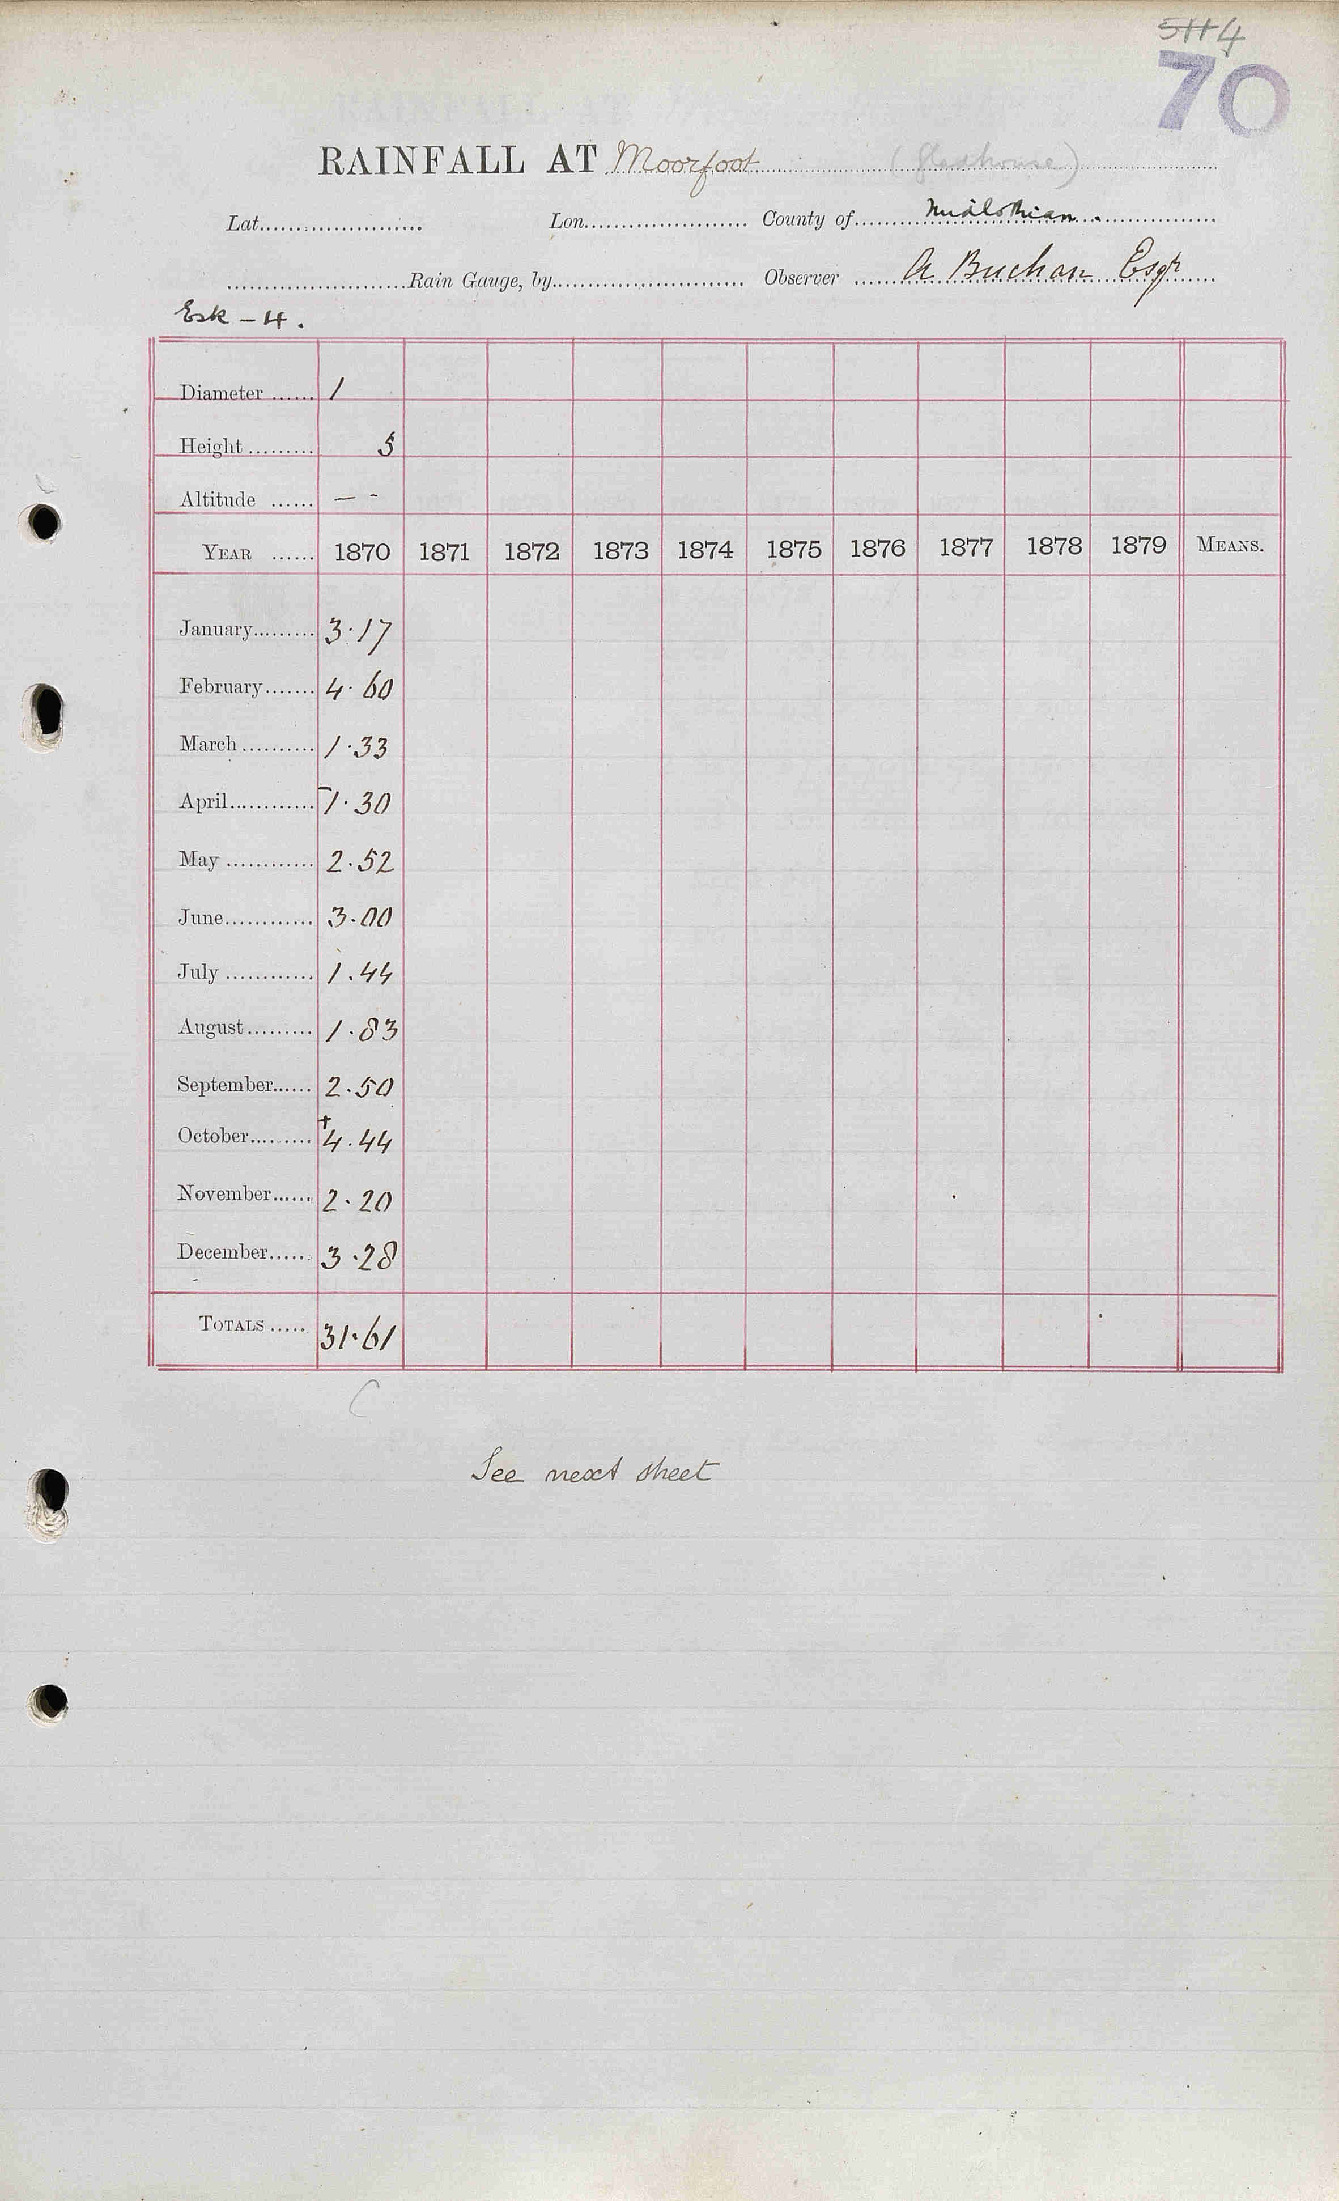 5114
70
RAINFALL AT Moorfoot (Gladhouse)
Lat. Lon. County of Midlothian.
Rain Gauge, by Observer A Buchan Esqr
Esk - 4.
Diameter 1
Height 5
Altitude — -
YEAR 1870 1871 1872 1873 1874 1875 1876 1877 1878 1879 MEANS.
January 3.17
February 4.60
March 1.33
April 1.30
May 2.52
June 3.00
July 1.44
August 1.83
September 2.50
October +4.44
November 2.20
December 3.28
TOTALS 31.61
C
See next sheet